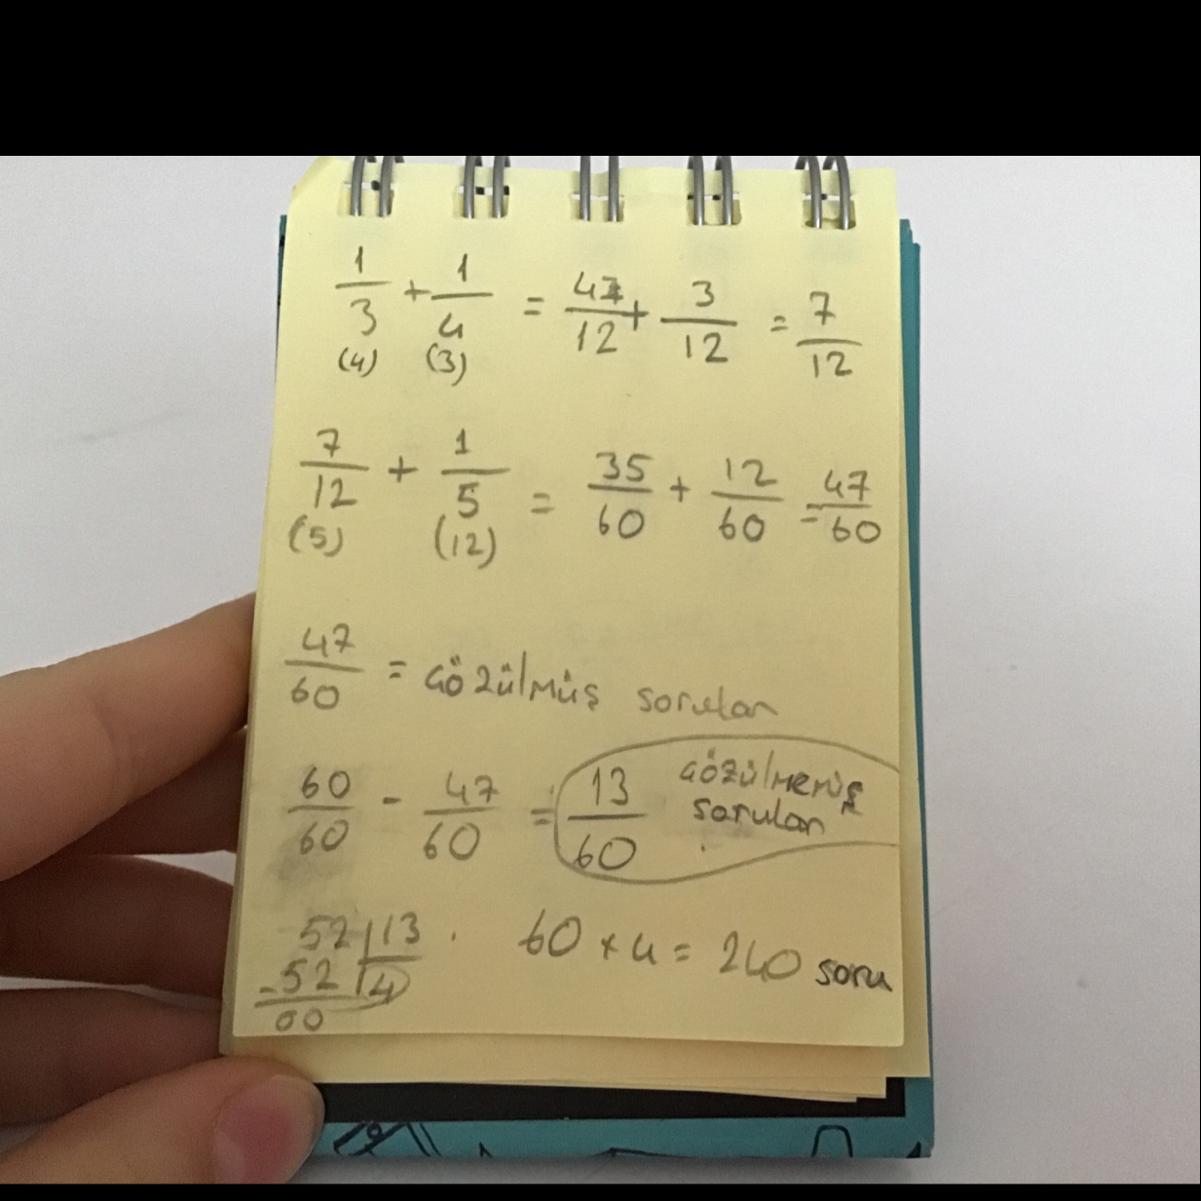 1/3 + 1/4 = 4/12 + 3/12 = 7/12
(4) (3)
7/12 + 1/5 = 35/60 + 12/60 = 47/60
(5) (12)
47/60 = çözülmüş soruları
60/60 - 47/60 = 13/60 çözülmemiş
soruları
52 | 13 . 60 x 4 = 240 soru
- 52 | 4
00